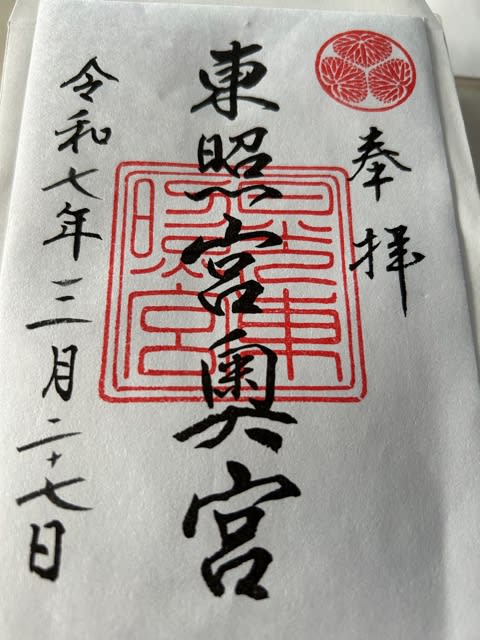 奉拝
東照宮奥宮
令和七年三月二十七日